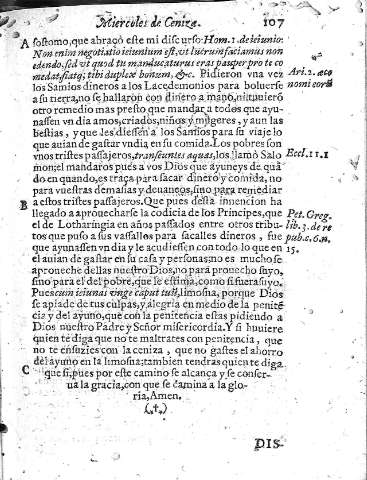 Miercoles de Ceniza. 107
A sostomo, que abraço este mi discurso. Hom. 1. de ieiunio.
Non enim negotiatio ieiunium est, vt lucrum faciamus non
edendo, sed vt quod tu manducaturus eras pauper pro te co
medat, fiatq; tibi duplex bonum, &c. Pidieron vna vez
los Samios dineros a los Lacedemonios para boluerse
a su tierra, no se hallaron con dinero a mano, ni tuuieró
otro remedio mas presto que mandar a todos que ayu-
nassen vn dia amos, criados, niños y mugeres, y aun las
bestias, y que les diessen a los Samios para su viaje lo
que auian de gastar vn dia en su comida. Los pobres son
vnos tristes passajeros, transeuntes aquas, los llamó Salo
mon: el mandaros pues a vos Dios que ayuneys de quã
do en quando, es traça para sacar dinero y comida, no
para vuestras demasias y deuaneos, sino para remediar
B a estos tristes passajeros. Que pues desta inuencion ha
llegado a aprouecharse la codicia de los Principes, que
el de Lotharingia en años passados entre otros tribu-
tos que puso a sus vassallos para sacalles dineros, fue
que ayunassen vn dia y le acudiessen con todo lo que en
el auian de gastar en su casa y personas; no es mucho se
aproueche dellas nuestro Dios, no para prouecho suyo,
sino para el del pobre, que se estima, como si fuera suyo.
Pues cum ieiunai vnge caput tuũ, limosna, porque Dios
se apiade de tus culpas, y alegria en medio de la penitẽ
cia y del ayuno, que con la penitencia estas pidiendo a
Dios nuestro Padre y Señor misericordia. Y si huuiere
quien te diga que no te maltrates con penitencia, que
no te ensuzies con la ceniza, que no gastes el ahorro
del ayuno en la limosna: tambien tendras quien te diga
C que si, pues por este camino se alcança y se conser-
ua la gracia, con que se camina a la glo-
ria, Amen.
(.†.)
DIS-
Ari. 2. œco
nomi cor
Eccl. 11. 1
Pet. Greg.
lib. 3. de re
pub. c. 6. n.
15.